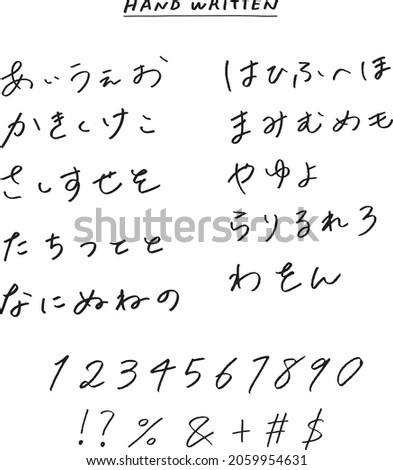 HAND WRITTEN
あいうえお
かきくけこ
さしすせそ
たちつてと
なにぬねの
はひふへほ
まみむめも
やゆよ
らりるれろ
わをん
1234567890
!?%&+#$
shutterstock
www.shutterstock.com · 2059954631